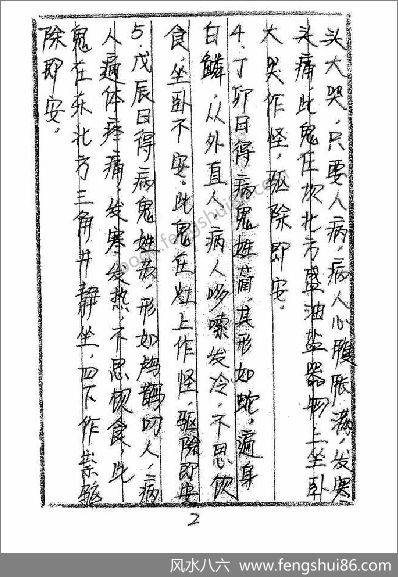 头大哭，只要人病，病人心腹胀满，发寒
头痛，此鬼在坎北方盛油盐器物上坐卧
大哭作怪，驱除即安。
4、丁卯日得病鬼姓简，其形如蛇，遍身
白鳞，从外直入，病人哆嗦发冷，不思饮
食，坐卧不安。此鬼在灶上作怪，驱除即安
5、戊辰日得病鬼姓，形如鹊叼人，病
人遍体疼痛，发寒发热不思饮食，此
鬼在东北方三角井静坐，四下作祟驱
除即安。
2
www.fengshui86.com
风水八六 www.fengshui86.com